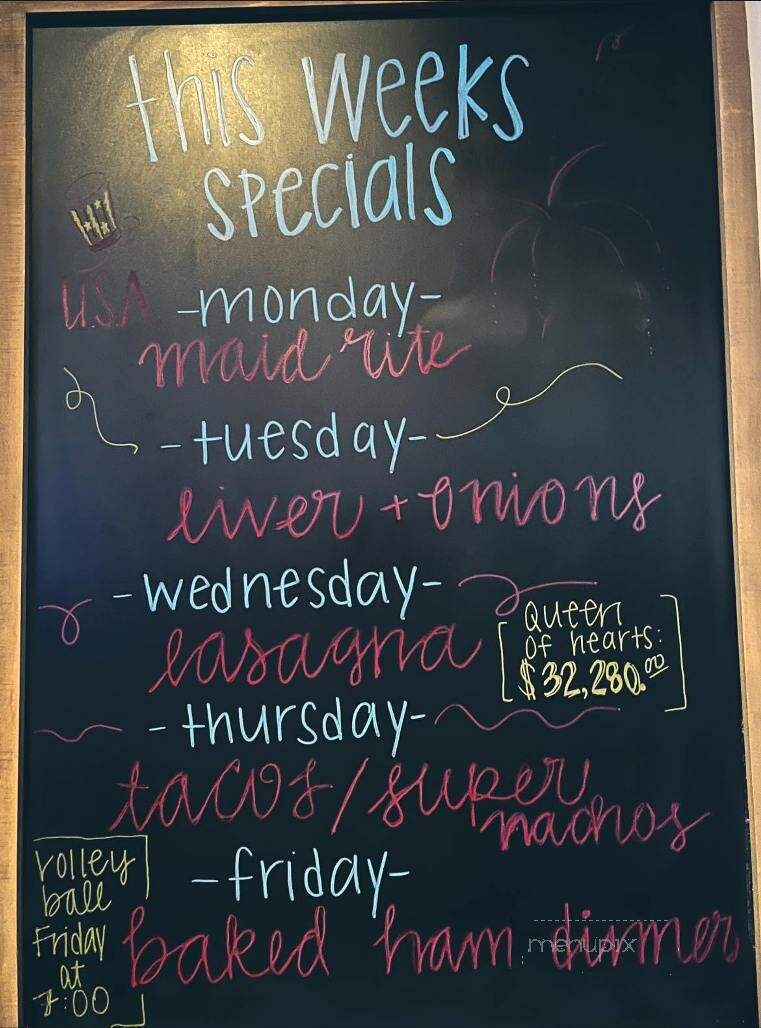 this weeks
specials
USA
-monday-
maid rite
-tuesday-
liver + onions
-wednesday-
lasagna
Queen
of hearts:
$32,280.00
-thursday-
tacos/super
nachos
-friday-
baked ham dinner
volley
ball
Friday
at
7:00
menupix